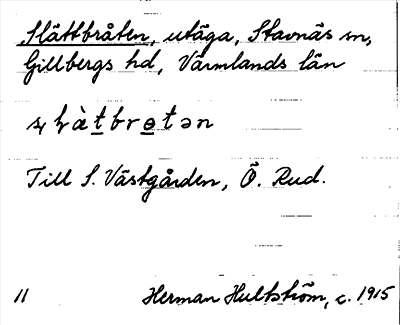 Slättbråten, utäga, Stavnäs sn,
Gillbergs hd, Värmlands län
Till S. Västgården, Ö. Rud.
11 Herman Hultström, c. 1915